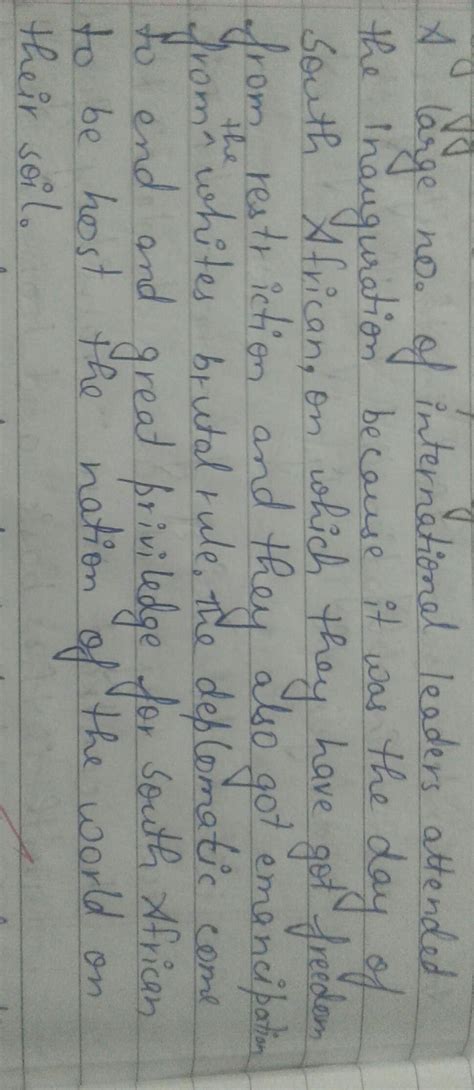 A large no. of international leaders attended
the inauguration because it was the day of
South African, on which they have got freedom
from restriction and they also got emancipation
from ^the whites brutal rule. The deplomatic come
to end and great priviledge for South African
to be host the nation of the world on
their soil.